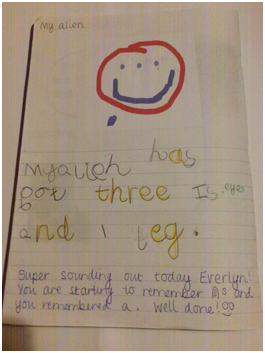 My alien
Myalieh has
got three Is eyes
and 1 leg.
Super sounding out today Everlyn!
You are starting to remember As and
you remembered a . Well done!